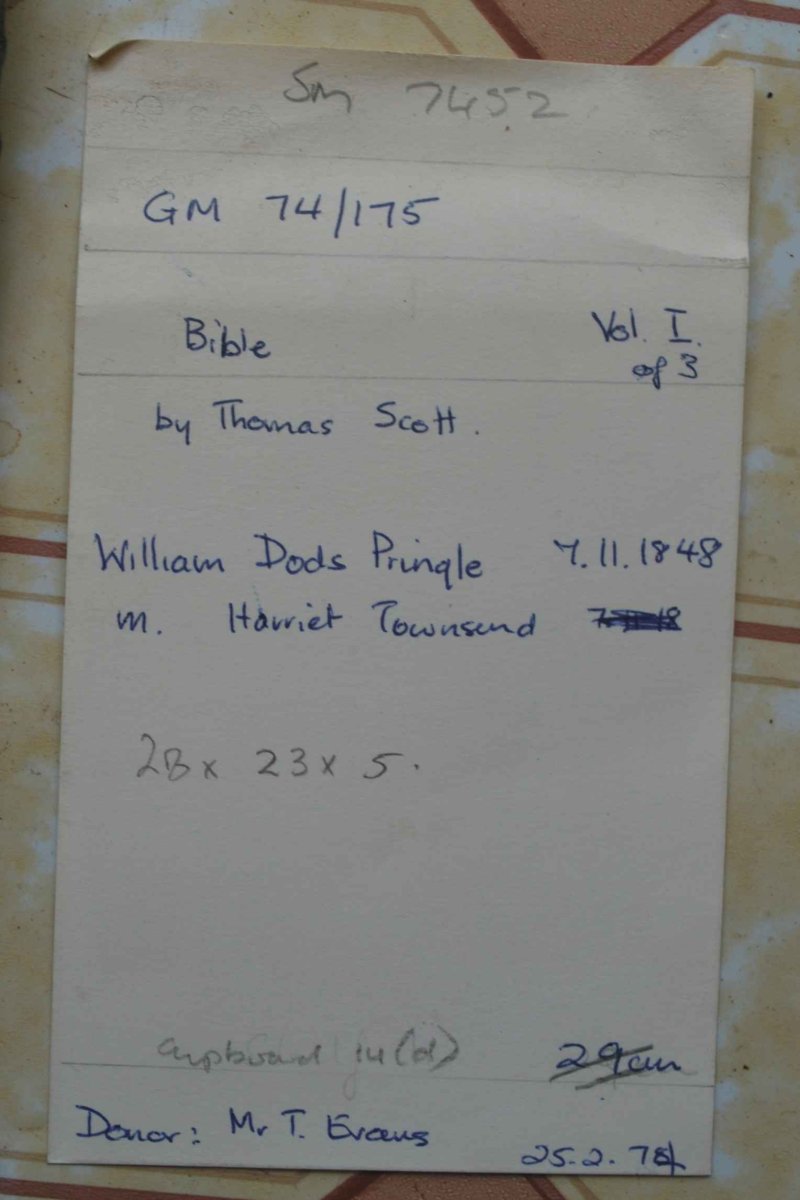 SM 7452
GM 74/175
Bible Vol. I.
of 3
by Thomas Scott.
William Dods Pringle 7.11.1848
m. Harriet Townsend
28 x 23 x 5.
Cupboard 14(d) 29cm
Donor: Mr T. Evans
25.2.74